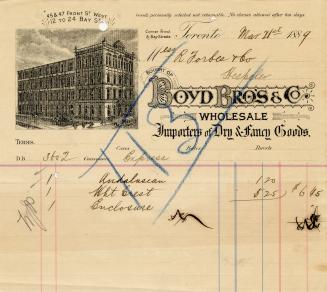 45 & 47 FRONT ST WEST
12 TO 24 BAY ST
Goods personally selected not returnable. No claims allowed after ten days.
Corner Front & Bay Streets
Toronto Mar 21st 1889
R. Forbes & Co
BOUGHT OF
BOYD BROS & CO.
WHOLESALE
Importers of Dry & Fancy Goods.
TERMS.
Cases Bales Parcels
D.B. 3602 Express
1 Andalusian 1 20
1 Wht Crest 5 25 $6 45
1 Enclosure